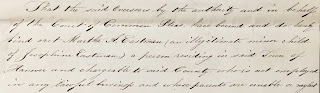 That the said Overseers by the authority and in behalf
of the Court of Common Pleas have bound and do hereby
bind out Martha A. Eastman (an illegitimate minor child
of Josephine Eastman) a person residing in said Town of
Hanover and chargeable to said County, who is not employed
in any lawful business and whose parents are unable or neglect